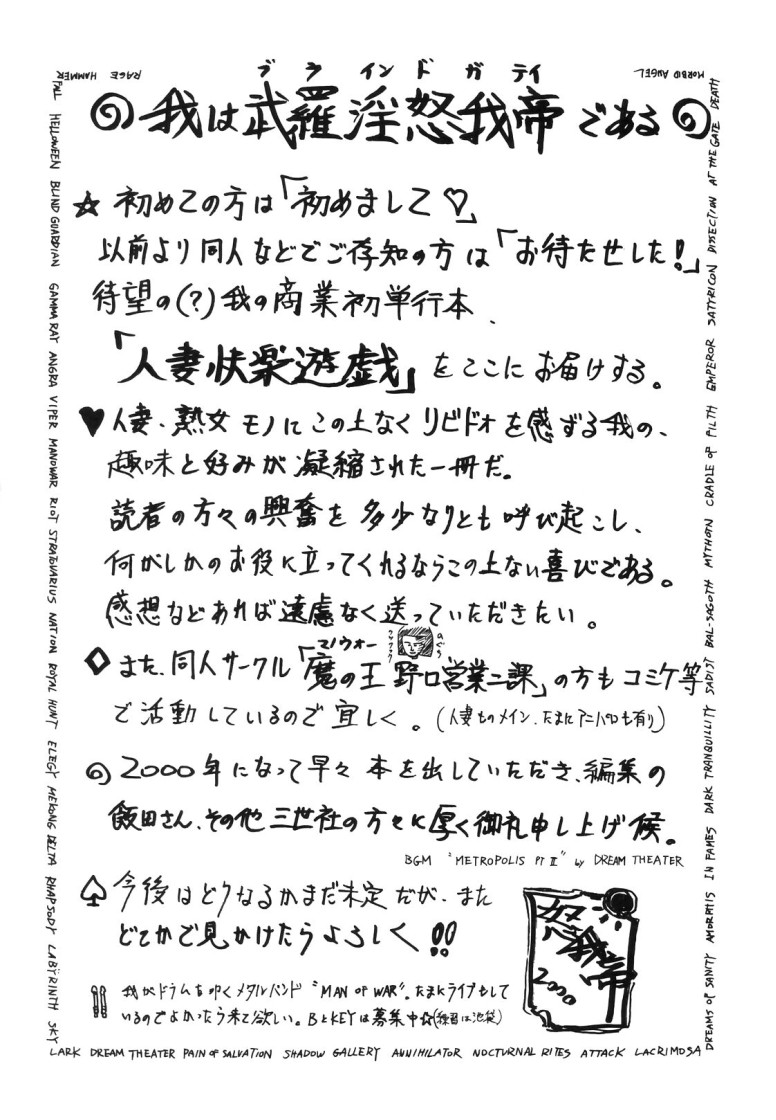 RAGE HAMMER
MORBID ANGEL
ブラインドガディ
我は武羅淫怒我帝である
☆初めての方は「初めまして♡」
以前より同人などでご存知の方は「お待たせした!」
待望の(?)我の商業初単行本、
「人妻快楽遊戯」をここにお届けする。
♥人妻、熟女モノにこの上なくリビドォを感ずる我の、
趣味と好みが凝縮された一冊だ。
読者の方々の興奮を多少なりとも呼び起こし、
何がしかのお役に立ってくれるならこの上ない喜びである。
感想などあれば遠慮なく送っていただきたい。
マノウォー
◇また、同人サークル「魔の王野口営業二課」の方もコミケ等
で活動しているので宜しく。(人妻ものメイン、たまにアニパロも有り)
2000年になって早々本を出していただき、編集の
飯田さん、その他三世社の方々に厚く御礼申し上げ候。
BGM "METROPOLIS PT II" by DREAM THEATER
♤今後はどうなるかまだ未定だが、また
どこかで見かけたらよろしく!!
我がドラムを叩くメタルバンド"MAN OF WAR"。たまにライブもして
いるのでよかったら来て欲しい。BとKEYは募集中☆(練習は池袋)
怒我帝
2000
FALL HELLOWEEN BLIND GUARDIAN GAMMA RAY ANGRA VIPER MANOWAR RIOT STRATOVARIUS NATION ROYAL HUNT ELEGY MEKONG DELTA RHAPSODY LABŸRINTH SKY
LARK DREAM THEATER PAIN OF SALVATION SHADOW GALLERY ANNIHILATOR NOCTURNAL RITES ATTACK LACRIMOSA
DREAMS OF SANITY AMORPHIS IN FAMES DARK TRANQUILLITY SADIST BAL-SAGOTH MYTHOTN CRADLE OF FILTH EMPEROR SATYRICON DISSECTION AT THE GATE DEATH